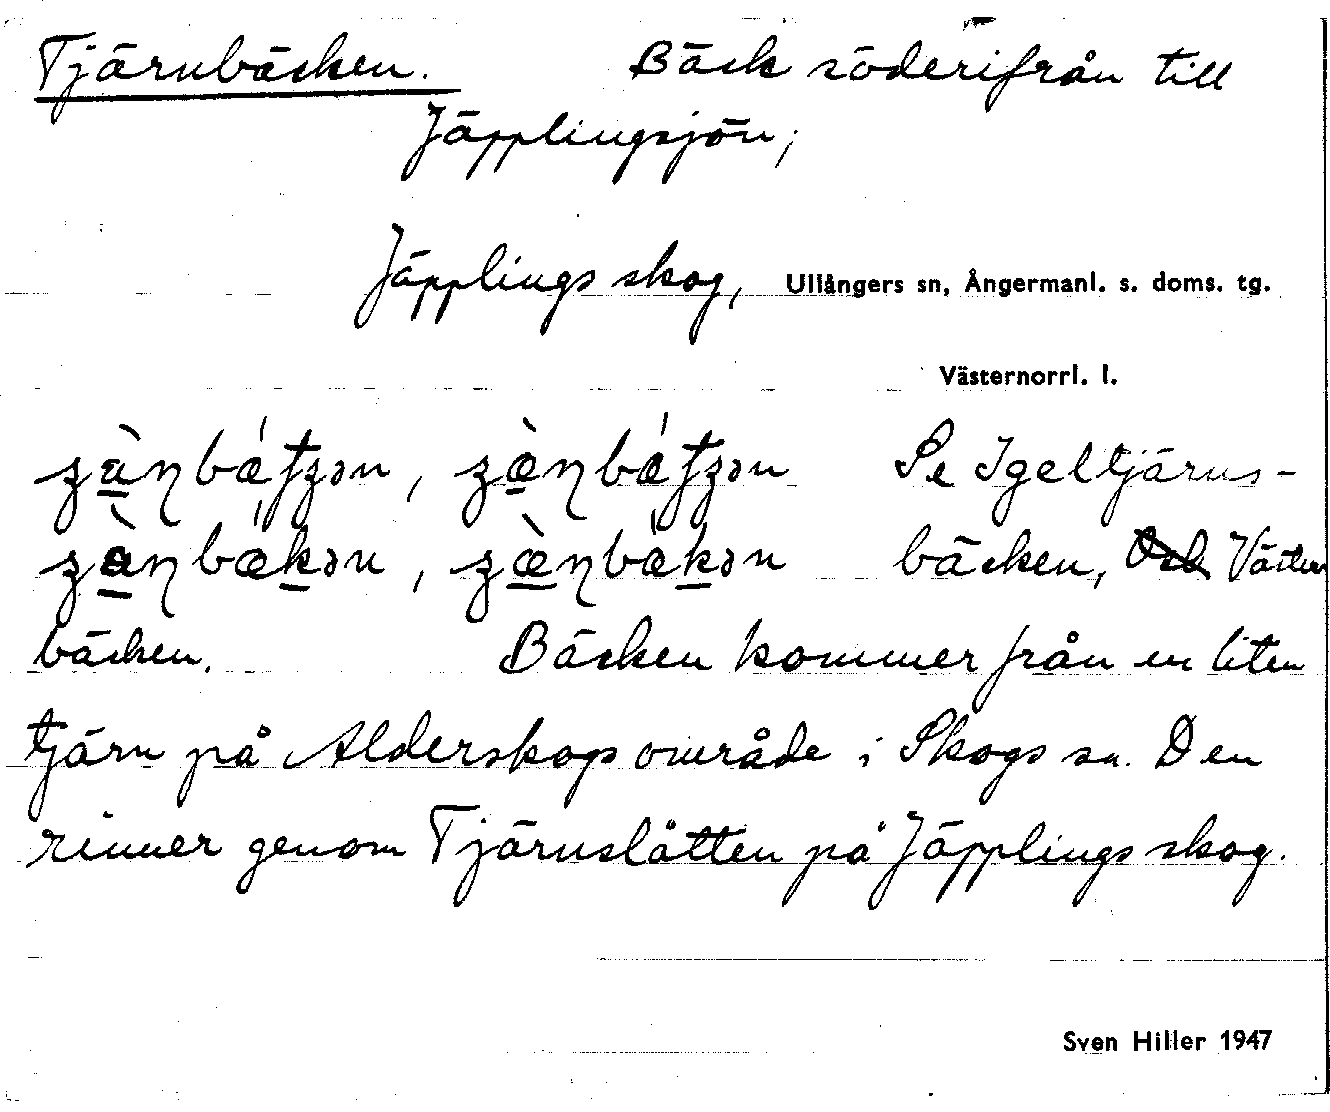 Tjärnbäcken. Bäck söderifrån till
Jäpplingsjön;
Jäpplings skog, Ullångers sn, Ångermanl. s. doms. tg.
Västernorrl. l.
Se Igeltjärns-
bäcken, Väster
bäcken. Bäcken kommer från en liten
tjärn på Alderskogs område i Skogs sn. Den
rinner genom Tjärnslåtten på Jäpplings skog.
Sven Hiller 1947